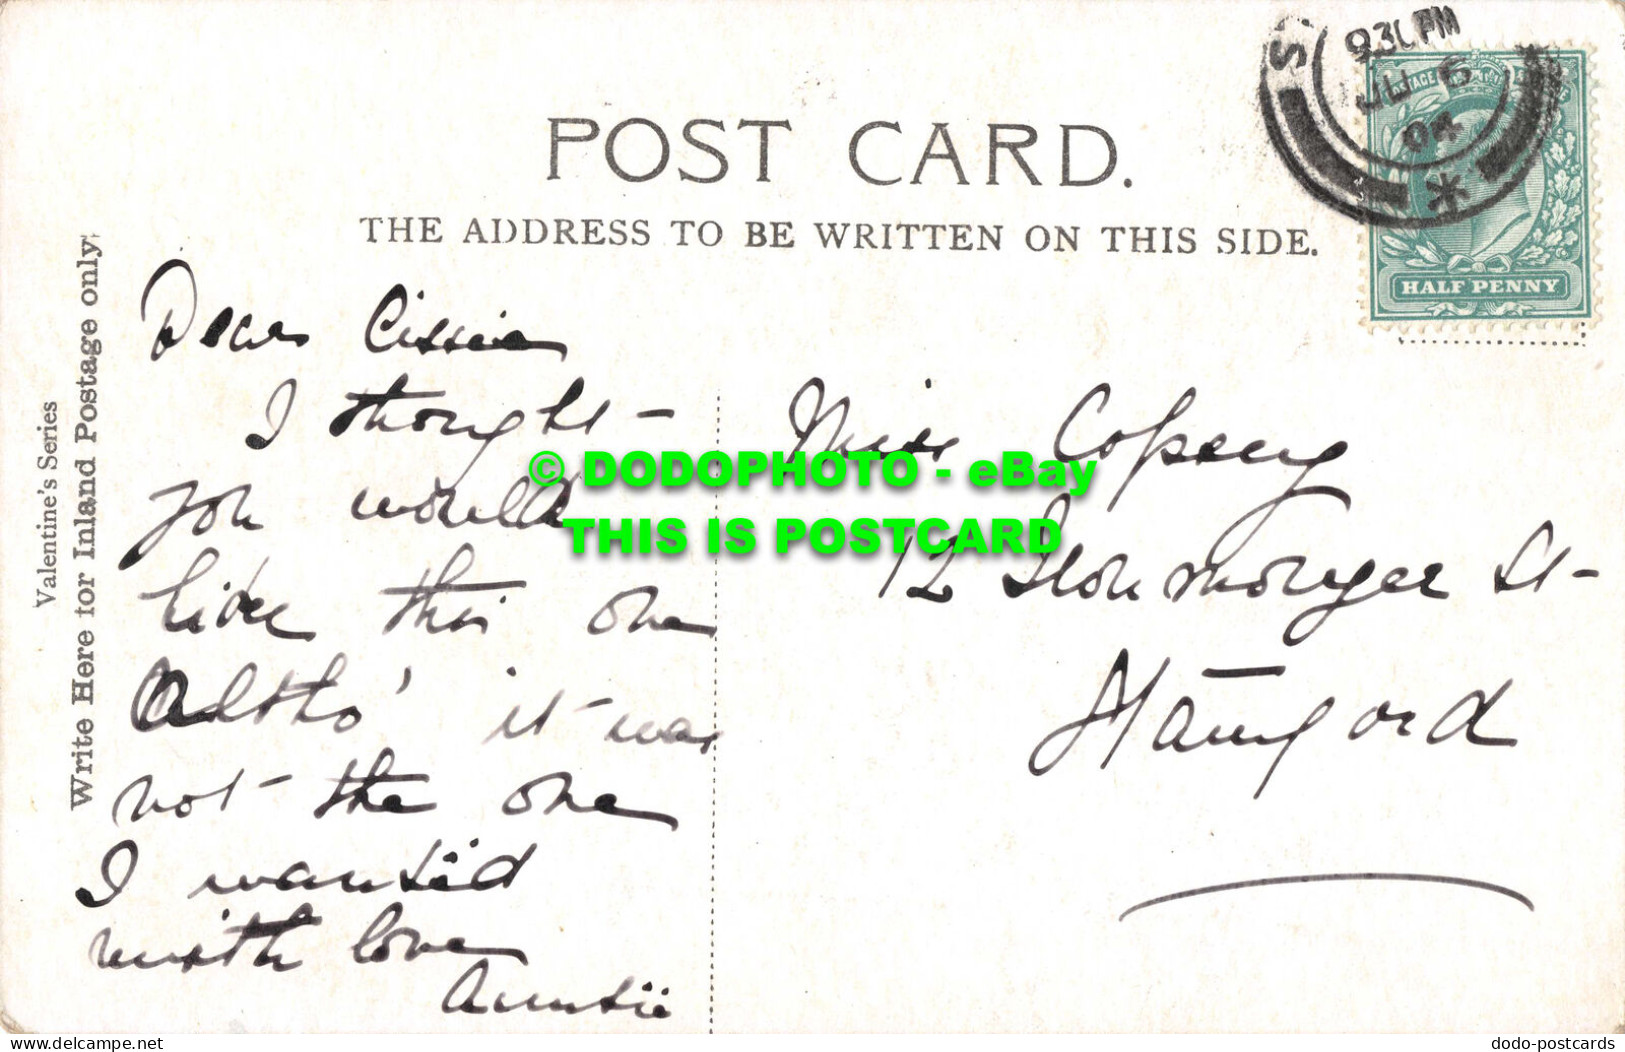 9 30 PM
JU 6
04
S
POST CARD.
THE ADDRESS TO BE WRITTEN ON THIS SIDE.
HALF PENNY
Valentine's Series
Write Here for Inland Postage only.
Dear Cissie
I thought
you would
like this one
Altho' it was
not the one
I wanted
with love
Auntie
Miss Copsey
12 Ironmonger St
Stamford
© DODOPHOTO - eBay
THIS IS POSTCARD
delcampe.net
dodo-postcards